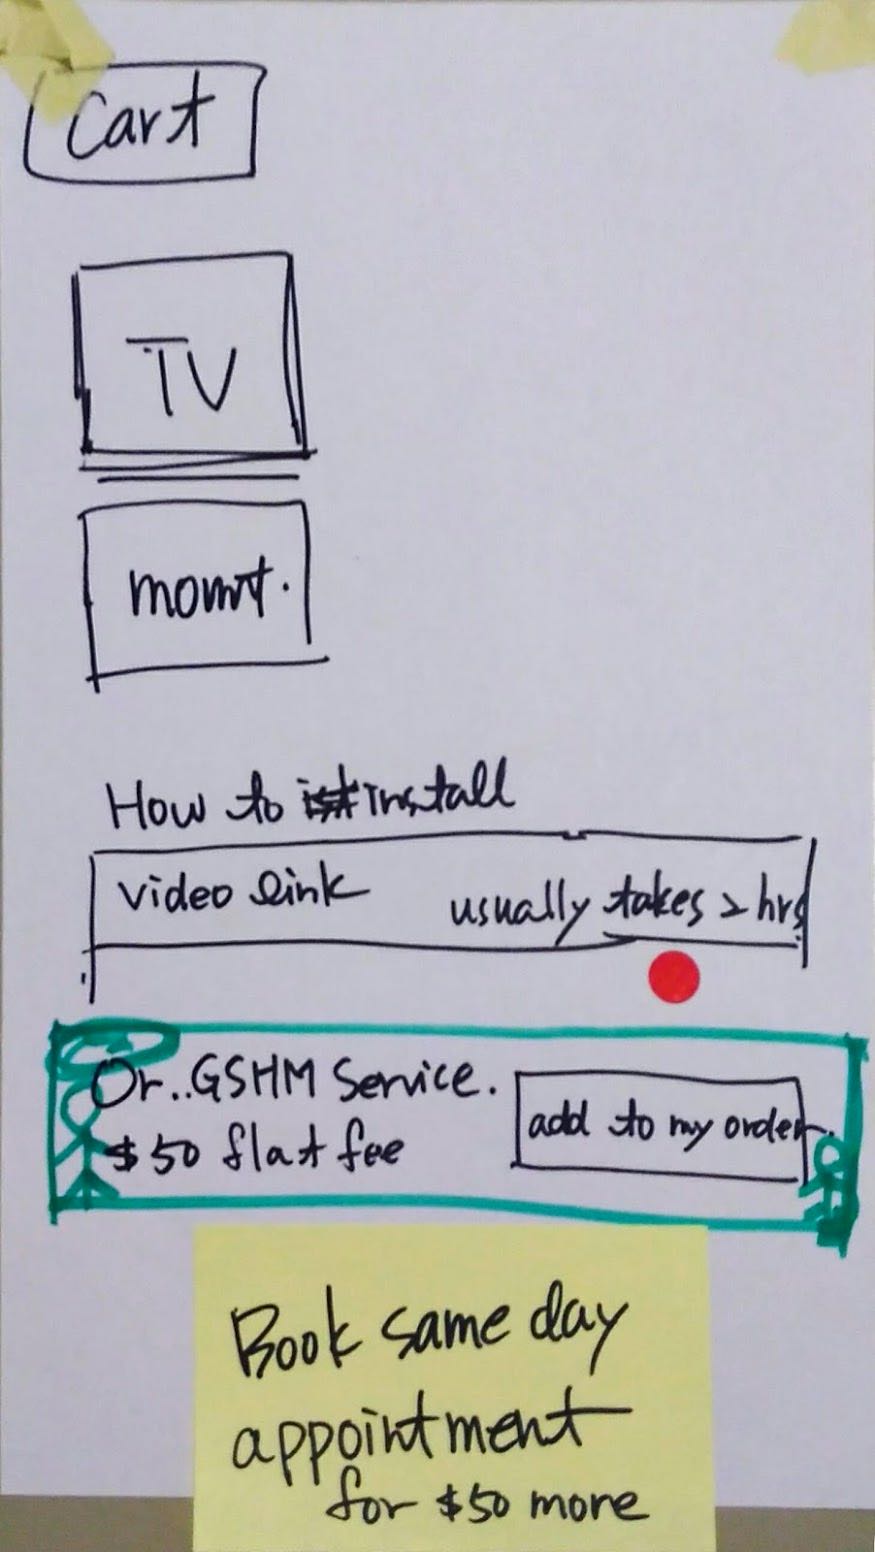 Cart
TV
mount.
How to install
video link usually takes 2 hrs
Or..GSHM Service.
$50 flat fee
add to my order.
Book same day
appointment
for $50 more